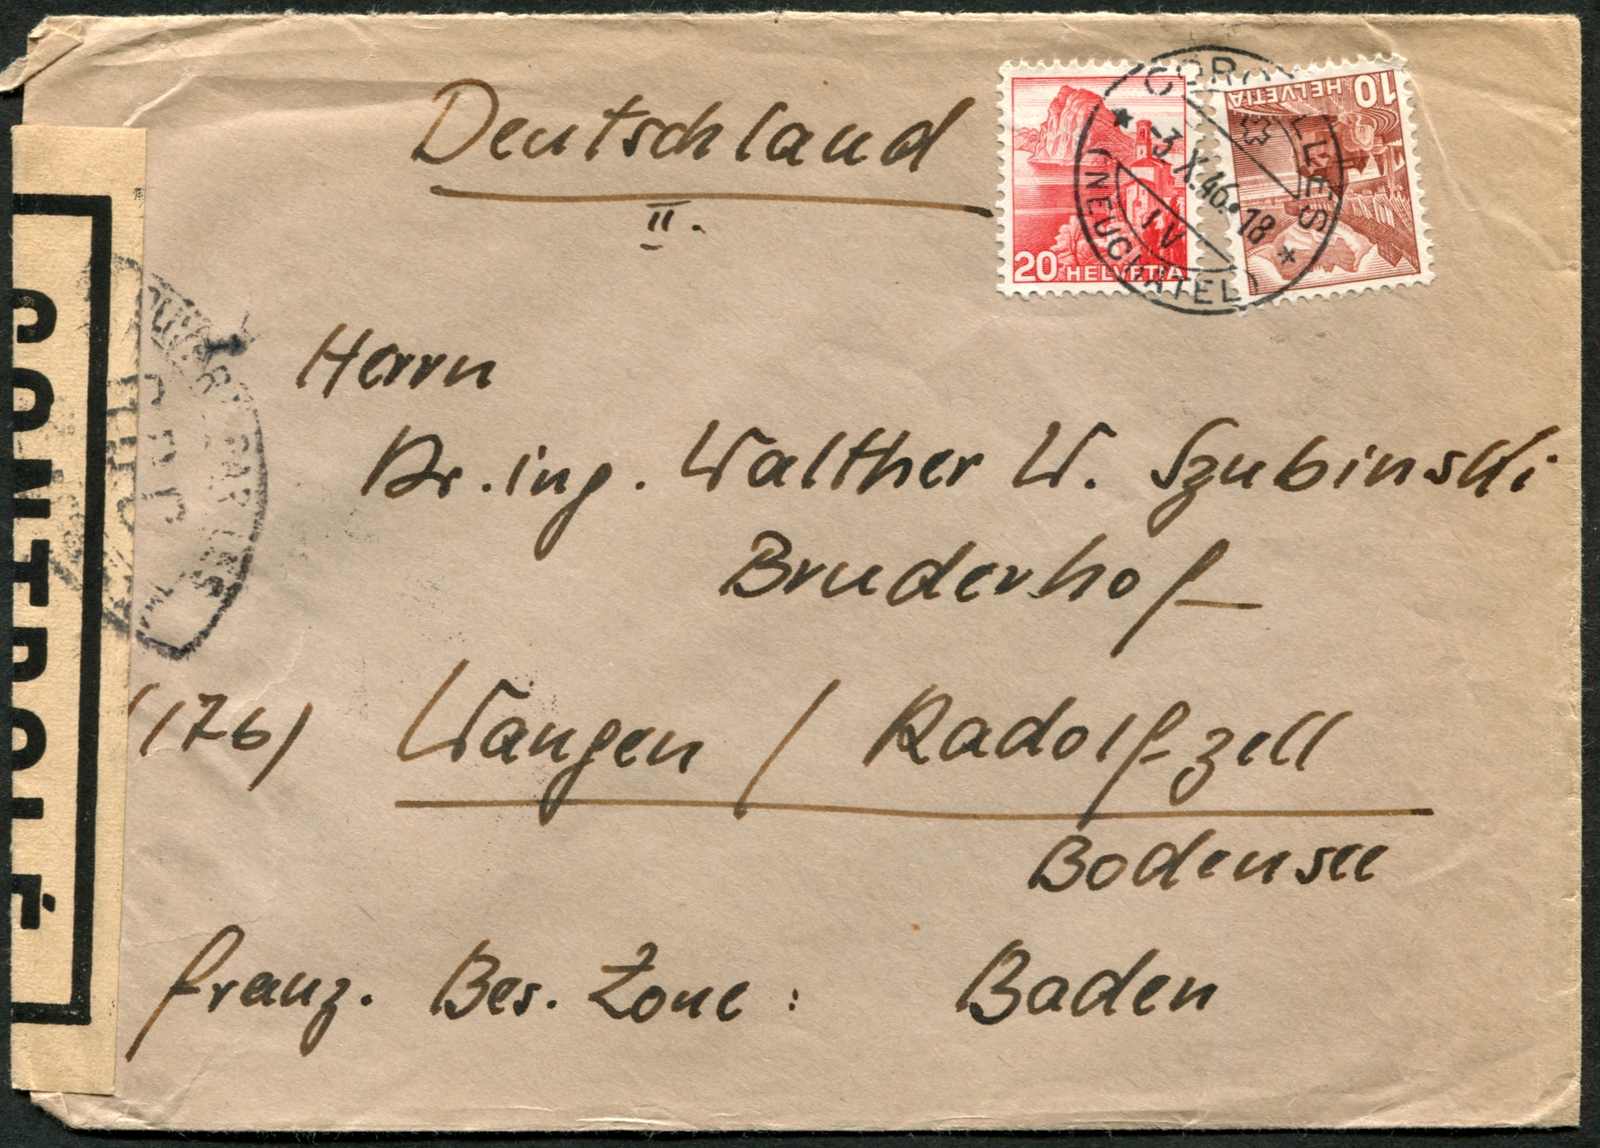 Deutschland
II.
20 HELVETIA
10 HELVETIA
CORCELLES
-3.X.46.-18
IV
(NEUCHATEL)
Herrn
Dr. ing. Walther W. Szubinski
Bruderhof
(17b) Wangen / Radolfzell
Bodensee
franz. Bes. Zone : Baden
CONTROLÉ